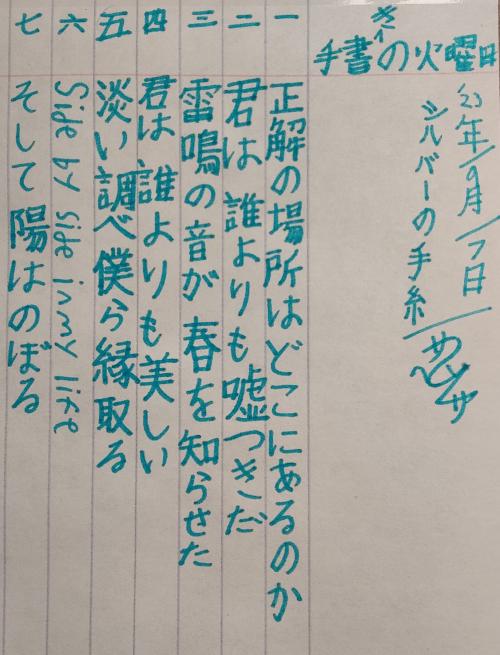 手書きの火曜日
年/9月/7日
シルバーの手糸/
一 正解の場所はどこにあるのか
二 君は誰よりも嘘つきだ
三 雷鳴の音が春を知らせた
四 君は誰よりも美しい
五 淡い調べ僕ら縁取る
六 Side by side in my life
七 そして陽はのぼる